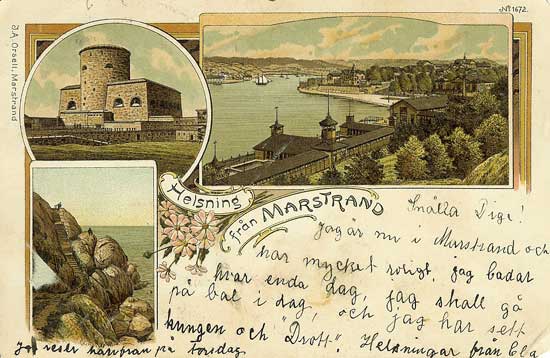 No 1672.
J.A. Orsell, Marstrand
Helsning
från MARSTRAND
Snälla Dige!
Jag är nu i Marstrand och
har mycket roligt, jag badar
hvar enda dag, jag skall gå
på bal i dag, och jag har sett
kungen och "Drott". Helsningar från Ela
Jag reser härifrån på Torsdag